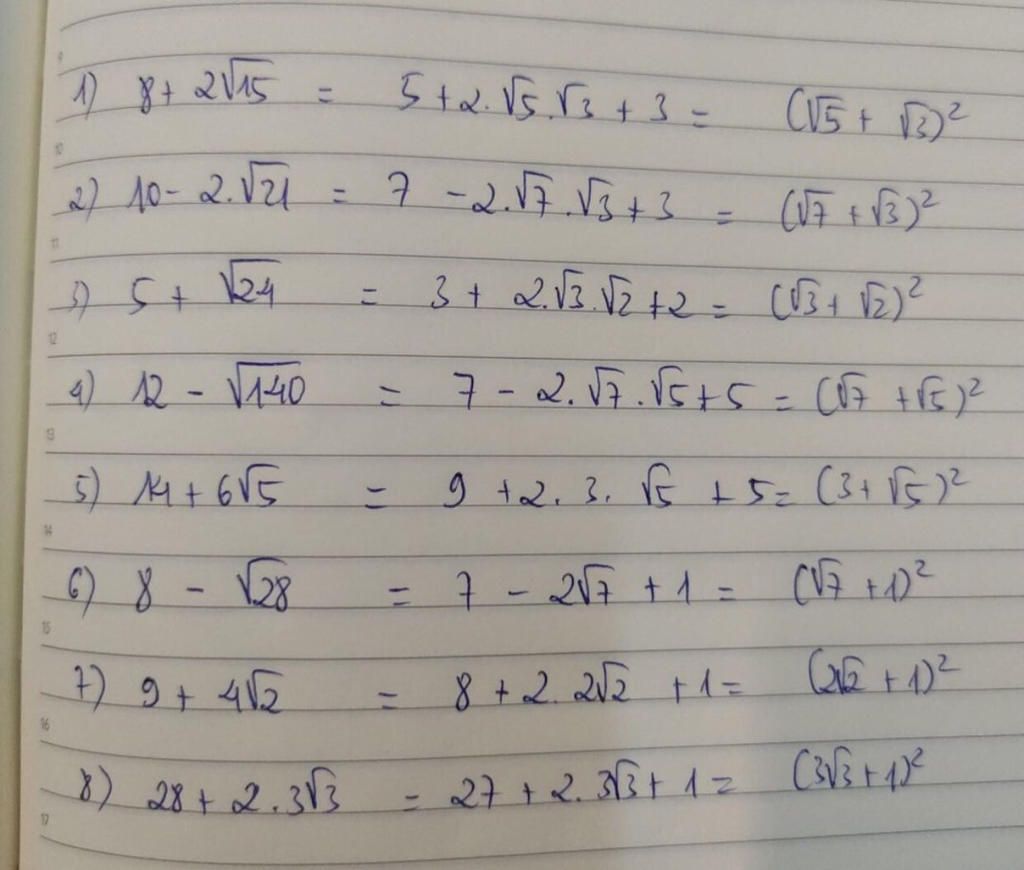 1) 8 + 2√15 = 5 + 2.√5.√3 + 3 = (√5 + √3)²
2) 10 - 2.√21 = 7 - 2.√7.√3 + 3 = (√7 + √3)²
3) 5 + √24 = 3 + 2.√3.√2 + 2 = (√3 + √2)²
4) 12 - √140 = 7 - 2.√7.√5 + 5 = (√7 + √5)²
5) 14 + 6√5 = 9 + 2.3.√5 + 5 = (3 + √5)²
6) 8 - √28 = 7 - 2√7 + 1 = (√7 + 1)²
7) 9 + 4√2 = 8 + 2.2√2 + 1 = (2√2 + 1)²
8) 28 + 2.3√3 = 27 + 2.3√3 + 1 = (3√3 + 1)²
9
10
11
12
13
14
15
16
17